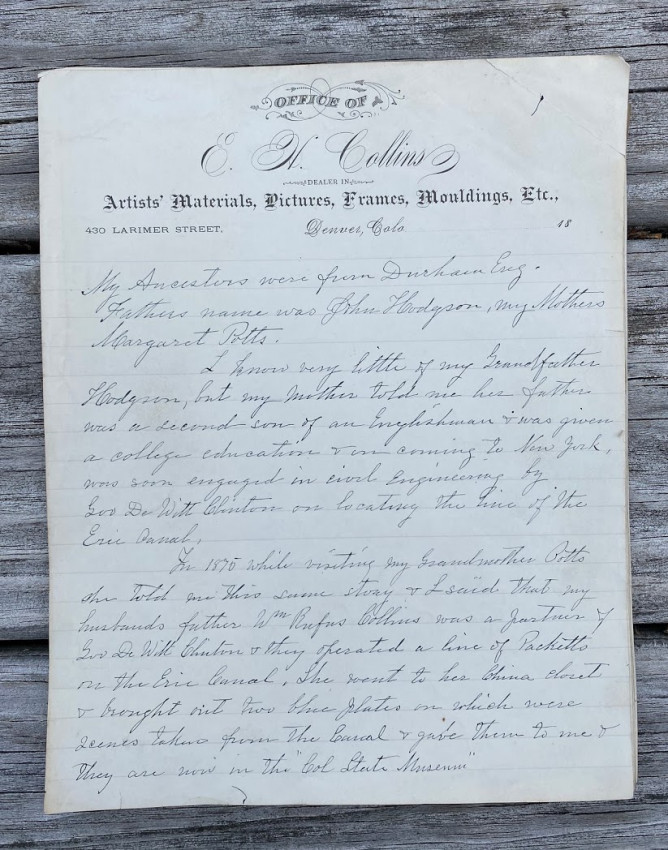 OFFICE OF
E. H. Collins
DEALER IN
Artists' Materials, Pictures, Frames, Mouldings, Etc.,
430 LARIMER STREET, Denver, Colo. 18
My Ancestors were from Durham Eng.
Fathers name was John Hodgson, my Mothers
Margaret Potts.
I know very little of my Grandfather
Hodgson, but my mother told me her father
was a second son of an Englishman & was given
a college education & on coming to New York,
was soon engaged in civil Engineering by
Gov De Witt Clinton on locating the line of the
Erie Canal.
In 1875 while visiting my Grandmother Potts
she told me this same story & I said that my
husbands father Wm Rufus Collins was a partner of
Gov De Witt Clinton & they operated a line of Packetts
on the Erie Canal. She went to her China closet
& brought out two blue plates on which were
scenes taken from the Canal & gave them to me &
they are now in the "Col State Museum"